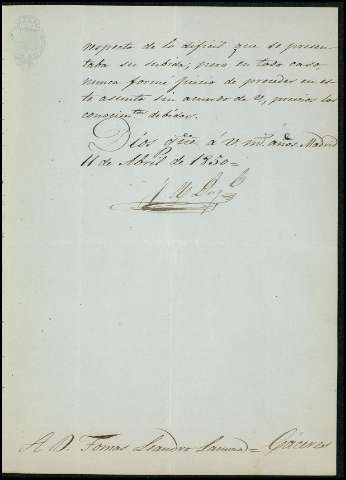 respecto de lo dificil que se presen
taba su subida; pero en todo caso
nunca formé juicio de proceder en es
te asunto sin acuerdo de V, previos los
debidos.
Dios gue á V ms. años. Madrid
11 de Abril de 1850=
A D. Tomas Leandro = Cáceres